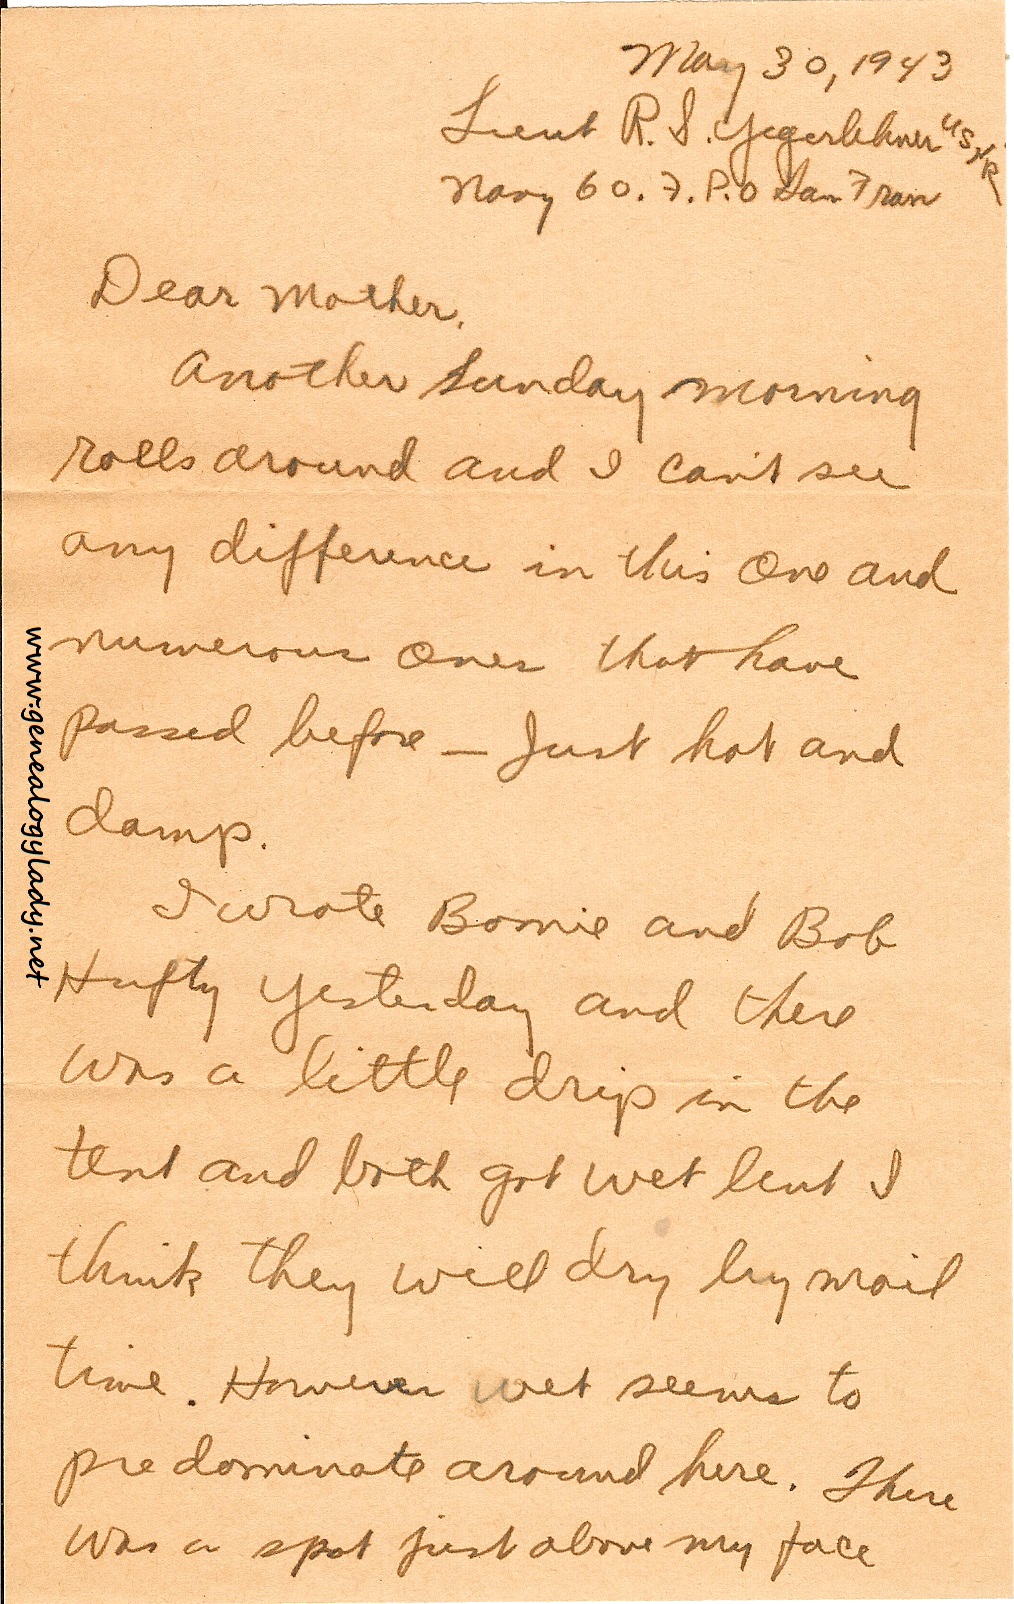 May 30, 1943
Lieut R. S. Yegerlehner USNR
Navy 60. F.P.O San Fran
Dear Mother.
Another Sunday morning
rolls around and I can't see
any difference in this one and
numerous ones that have
passed before — Just hot and
damp.
I wrote Bonnie and Bob
Hufty yesterday and there
was a little drip in the
tent and both got wet but I
think they will dry by mail
time. However wet seems to
predominate around here. There
was a spot just above my face
www.genealogylady.net